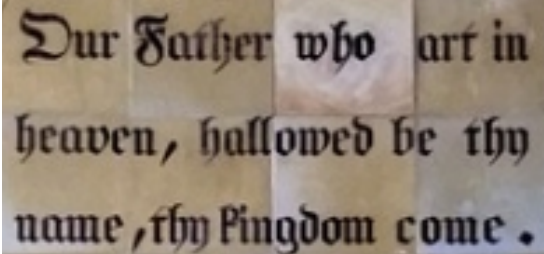 Our Father who art in
heaven, hallowed be thy
name, thy kingdom come.